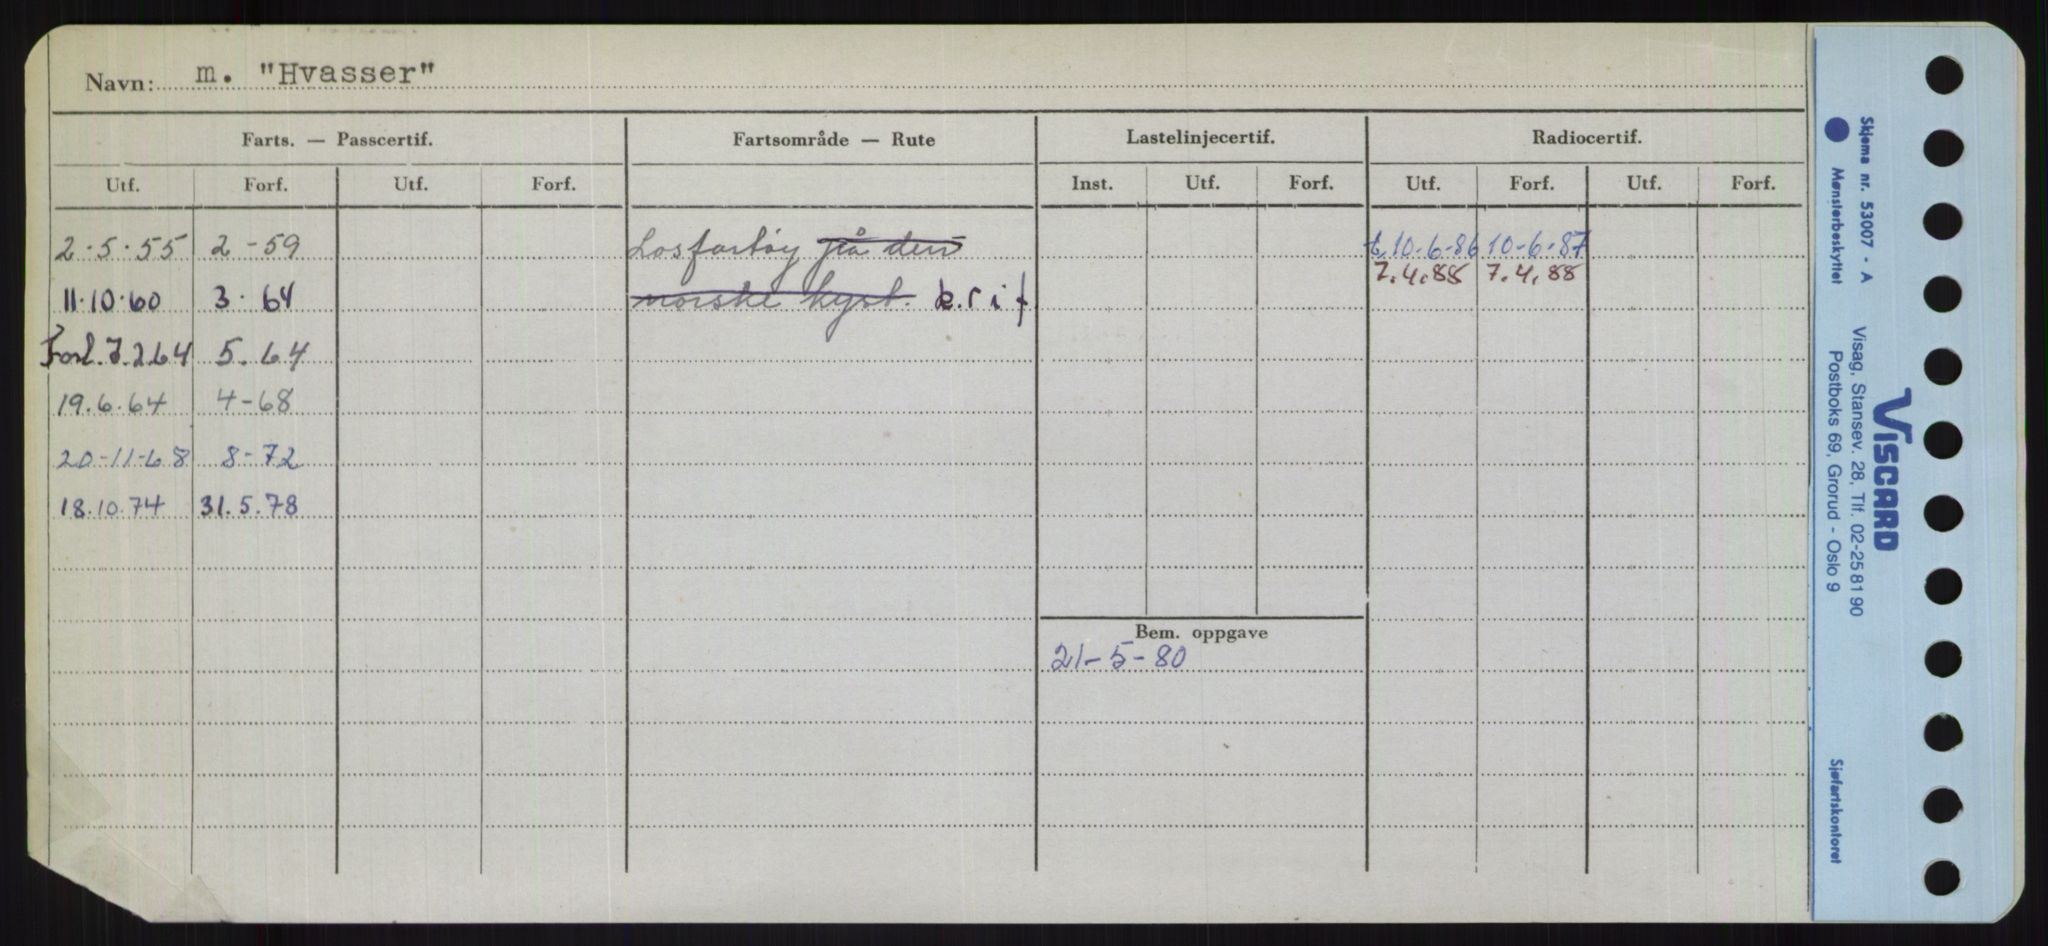 Navn: m. "Hvasser"
Farts. — Passcertif. Fartsområde — Rute Lastelinjecertif. Radiocertif.
Utf. Forf. Utf. Forf. Inst. Utf. Forf. Utf. Forf. Utf. Forf.
2-5-55 2-59 Losfartøy på den 10-6-86 10-6-87
7.4.88 7.4.88
11-10-60 3-64 norske kyst. k.r i f
Forl. 7.2.64 5.64
19.6.64 4-68
20-11-68 8-72
18.10.74 31.5.78
Bem. oppgave
21-5-80
Skjema nr. 53007 - A
Mønsterbeskyttet
VISCARD
Visag, Stansev. 28, Tlf. 02-25 81 90
Postboks 69, Grorud - Oslo 9
Sjøfartskontoret